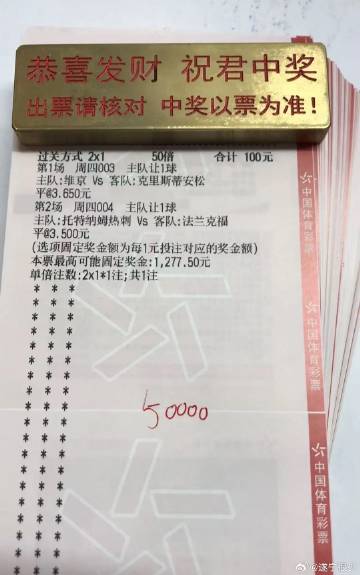 恭喜发财 祝君中奖
出票请核对 中奖以票为准!
过关方式 2x1 50倍 合计 100元
第1场 周四003 主队让1球
主队:维京 Vs 客队:克里斯蒂安松
平@3.650元
第2场 周四004 主队让1球
主队:托特纳姆热刺 Vs 客队:法兰克福
平@3.500元
(选项固定奖金额为每1元投注对应的奖金额)
本票最高可能固定奖金:1,277.50元
单倍注数:2x1*1注;共1注
50000
中国体育彩票
中国体育彩票
中国体育彩票